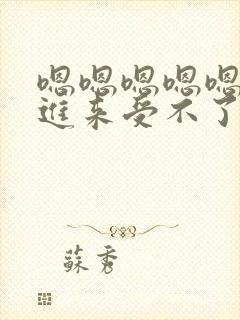 嗯嗯嗯嗯嗯
进来受不了
苏秀